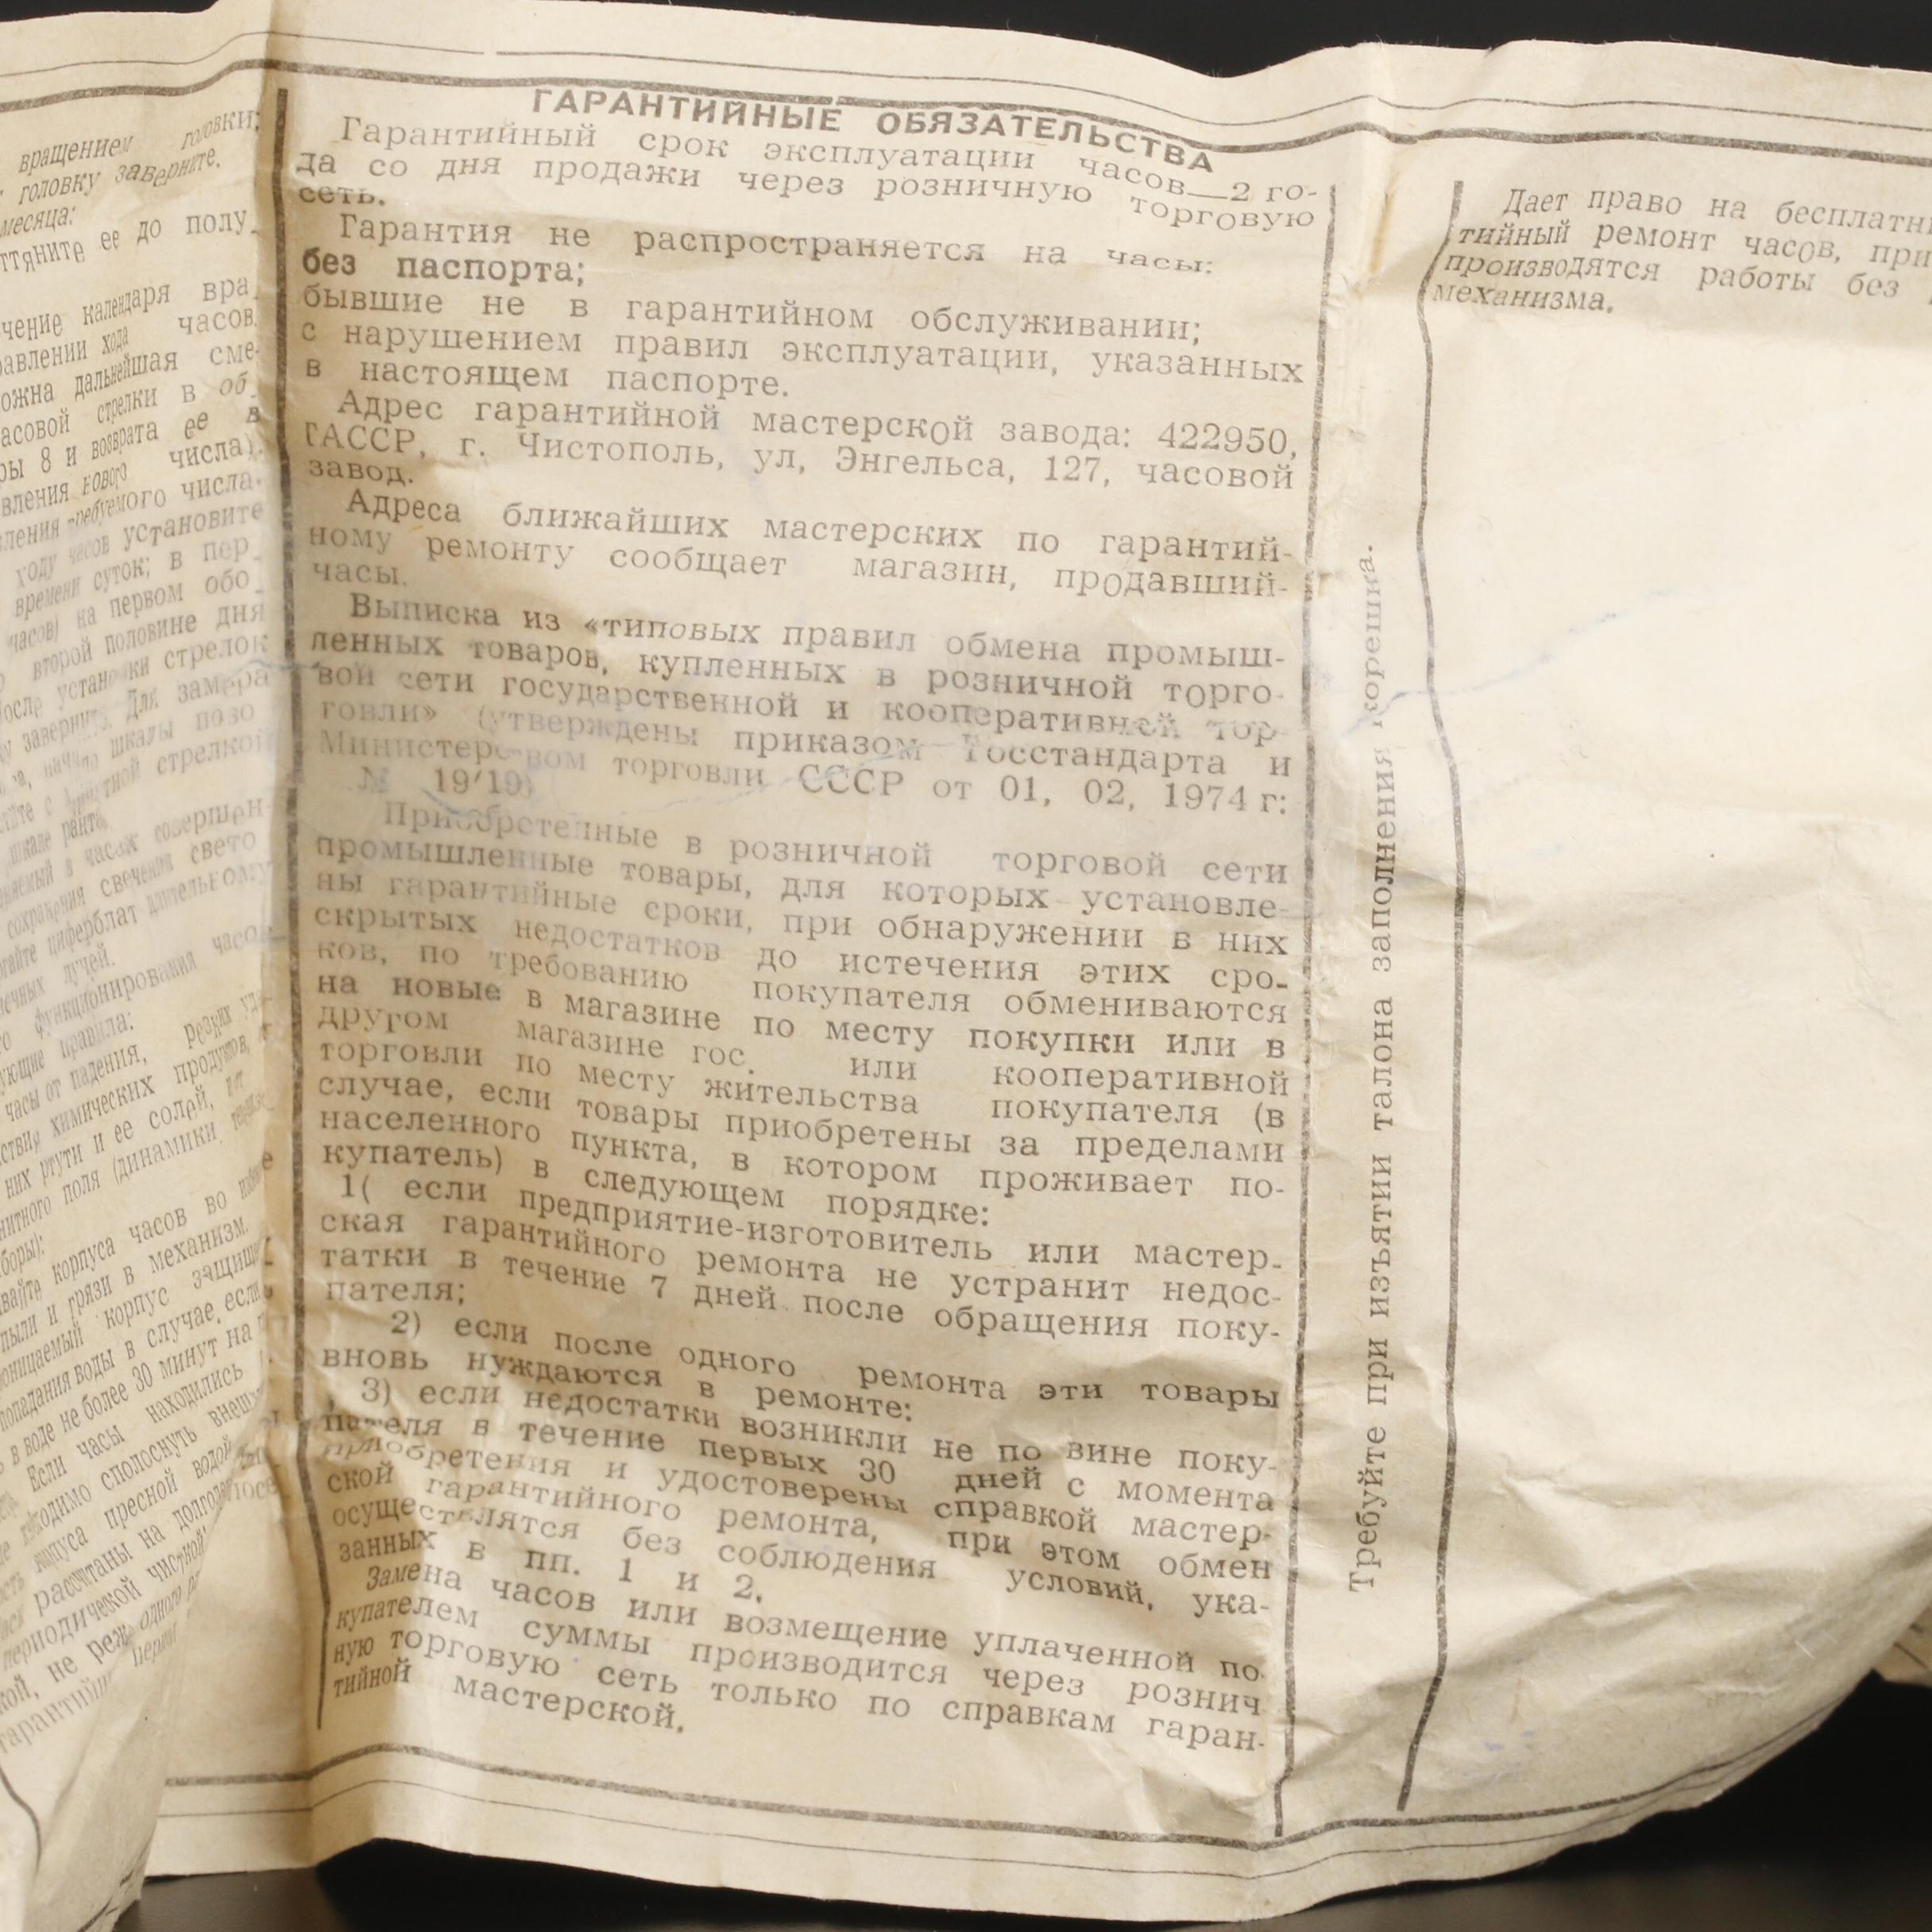 вращением головки;
головку заверните.
месяца:
ттяните ее до полу
чение календаря вра
равлении хода часов
ожна дальнейшая сме-
асовой стрелки в об
ры 8 и возврата ее в
вления нового числа).
ления требуемого числа.
ходу часов установите
времени суток; в пер
часов) на первом обо
второй половине дня
осле установки стрелок
заверните. Для замера
шкалы пово
стрелкой
шкале ранта
в часах совершен-
сохранения свечения свето
циферблат длительному
лучей.
функционирования часо
ующие правила:
часы от падения, резких уд
ствия химических продуктов,
них ртути и ее солей,
нитного поля (динамики,
боры);
вайте корпуса часов во
пыли и грязи в механизм.
оницаемый корпус защищ
попадания воды в случае, если
в воде не более 30 минут на
Если часы находились
сполоснуть внеш
пуса пресной водой
рассчитаны на
периодической чистной
кой, не реже одного ра
ГАРАНТИЙНЫЕ ОБЯЗАТЕЛЬСТВА
Гарантийный срок эксплуатации часов—2 го-
да со дня продажи через розничную торговую
сеть.
Гарантия не распространяется на часы:
без паспорта;
бывшие не в гарантийном обслуживании;
с нарушением правил эксплуатации, указанных
в настоящем паспорте.
Адрес гарантийной мастерской завода: 422950,
ТАССР, г. Чистополь, ул, Энгельса, 127, часовой
завод.
Адреса ближайших мастерских по гарантий-
ному ремонту сообщает магазин, продавший-
часы.
Выписка из «типовых правил обмена промыш-
ленных товаров, купленных в розничной торго-
вой сети государственной и кооперативной тор-
говли» (утверждены приказом Госстандарта и
Министерством торговли СССР от 01, 02, 1974 г:
№ 19/19)
Приобретенные в розничной торговой сети
промышленные товары, для которых установле-
ны гарантийные сроки, при обнаружении в них
скрытых недостатков до истечения этих сро-
ков, по требованию покупателя обмениваются
на новые в магазине по месту покупки или в
другом магазине гос. или кооперативной
торговли по месту жительства покупателя (в
случае, если товары приобретены за пределами
населенного пункта, в котором проживает по-
купатель) в следующем порядке:
1( если предприятие-изготовитель или мастер-
ская гарантийного ремонта не устранит недос-
татки в течение 7 дней после обращения поку-
пателя;
2) если после одного ремонта эти товары
вновь нуждаются в ремонте:
3) если недостатки возникли не по вине поку-
пателя в течение первых 30 дней с момента
приобретения и удостоверены справкой мастер-
ской гарантийного ремонта, при этом обмен
осуществлятся без соблюдения условий, ука-
занных в пп. 1 и 2.
Замена часов или возмещение уплаченной по-
купателем суммы производится через рознич
ную торговую сеть только по справкам гаран-
тийной мастерской.
Требуйте при изъятии талона заполнения корешка.
Дает право на бесплатн
тийный ремонт часов, при
производятся работы без
механизма.